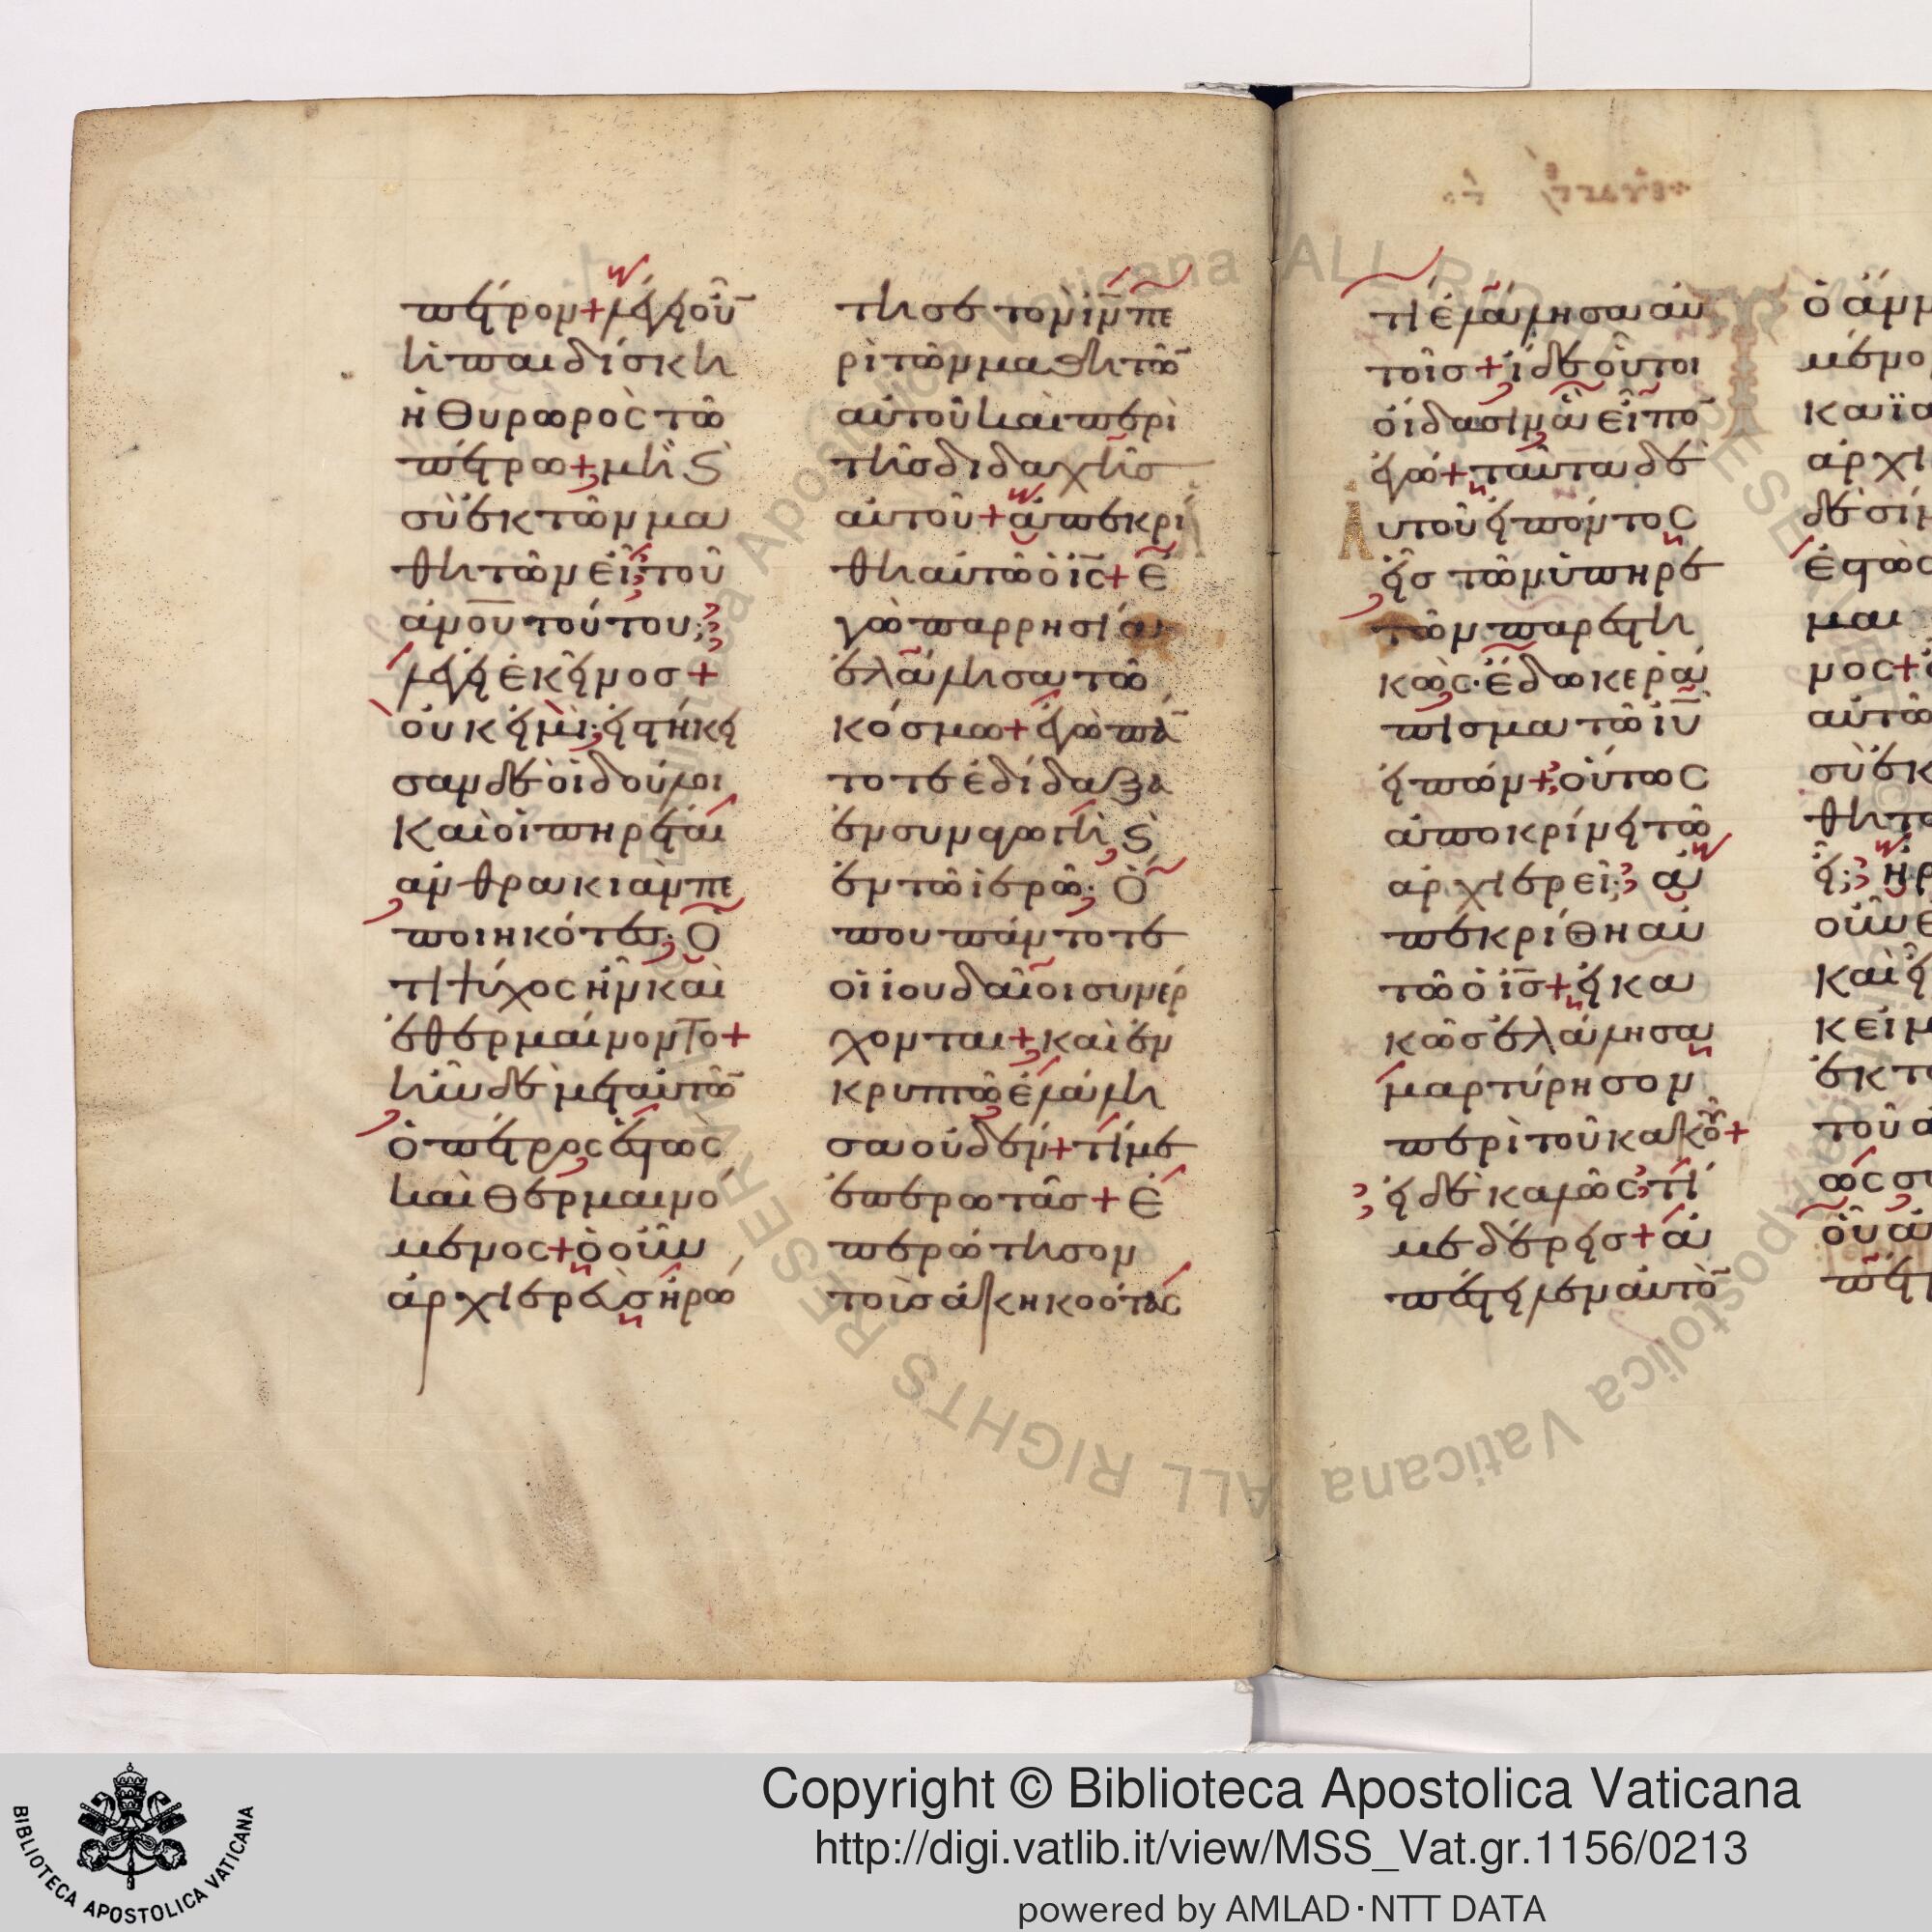 πέτρον + λέγει οὖ̄
ἡ παιδίσκη
ἡ θυρωρὸς τῶ
πέτρω + μὴ ϛ
σὺ ἐκ τῶν μα
θητῶν εἶ τοῦ
ἀν̅ου̅ τούτου;
λέγει ἐκεῖνος +
οὐκ εἰμὶ· εἱστήκει
σαν δὲ οἱ δοῦλοι
Καὶ οἱ ὑπηρέται
ἀνθρακιὰν πε
ποιηκότες· Ὅ
τι ψύχος ἦν καὶ
ἐθερμαίνοντο +
ἦν δὲ μετ αὐτῶ̄
ὁ πέτρος ἑστὼς
καὶ θερμαινό
μενος + ὁ οὖν
ἀρχιερεὺς ἠρώ
τησε τὸν ἰν̅ πε
ρὶ τῶν μαθητῶ̄
αὐτοῦ καὶ περὶ
τῆς διδαχῆς
αὐτοῦ + ἀπεκρί
θη αὐτῶ ὁ ἰς̅ + ἐ
γὼ παρρησία
ἐλάλησα τῶ
κόσμω + ἐγὼ πά̄
τοτε ἐδίδαξα
ἐν συναγωγῆ ϛ
ἐν τῶ ἱερῶ· Ὅ
που πάντοτε
οἱ ἰουδαῖοι συνέρ
χονται + καὶ ἐν
κρυπτῶ ἐλάλη
σα οὐδέν + τί με
ἐπερωτᾶς + ἐ
περώτησον
τοὺς ἀκηκοότας
τί ἐλάλησα αὐ
τοῖς + ἴδε οὗτοι
οἴδασιν ἃ εἶπο̄
ἐγώ + ταῦτα δὲ
Αὐτοῦ εἰπόντος
εἷς τῶν ὑπηρε
τῶν παρεστη
κὼς· ἔδωκε ῥά
πισμα τῶ ἰυ̅
εἰπών + οὕτως
ἀποκρίνει τῶ
ἀρχιερεῖ; ἀ
πεκρίθη αὐ
τῶ ὁ ἰς̅ + εἰ κα
κῶς ἐλάλησα
μαρτύρησον
περὶ τοῦ κακοῦ +
εἰ δὲ καλῶς τί
με δέρεις + ἀ
πέστειλεν αὐτὸ̄
ὁ ἄνν
μένο
καϊα
ἀρχι
δὲ σίμ
Ἑστὼς
μαι
μος +
αὐτῶ
σὺ ἐκ
θητῶ
εἶ; ἠρ
οὖν ἐ
Καὶ εἶ
κείν
ἐκ τῶ
τοῦ ἀ
ὡς συ
οὗ ἀ
πέτ
Copyright © Biblioteca Apostolica Vaticana
http://digi.vatlib.it/view/MSS_Vat.gr.1156/0213
powered by AMLAD·NTT DATA
BIBLIOTECA APOSTOLICA VATICANA